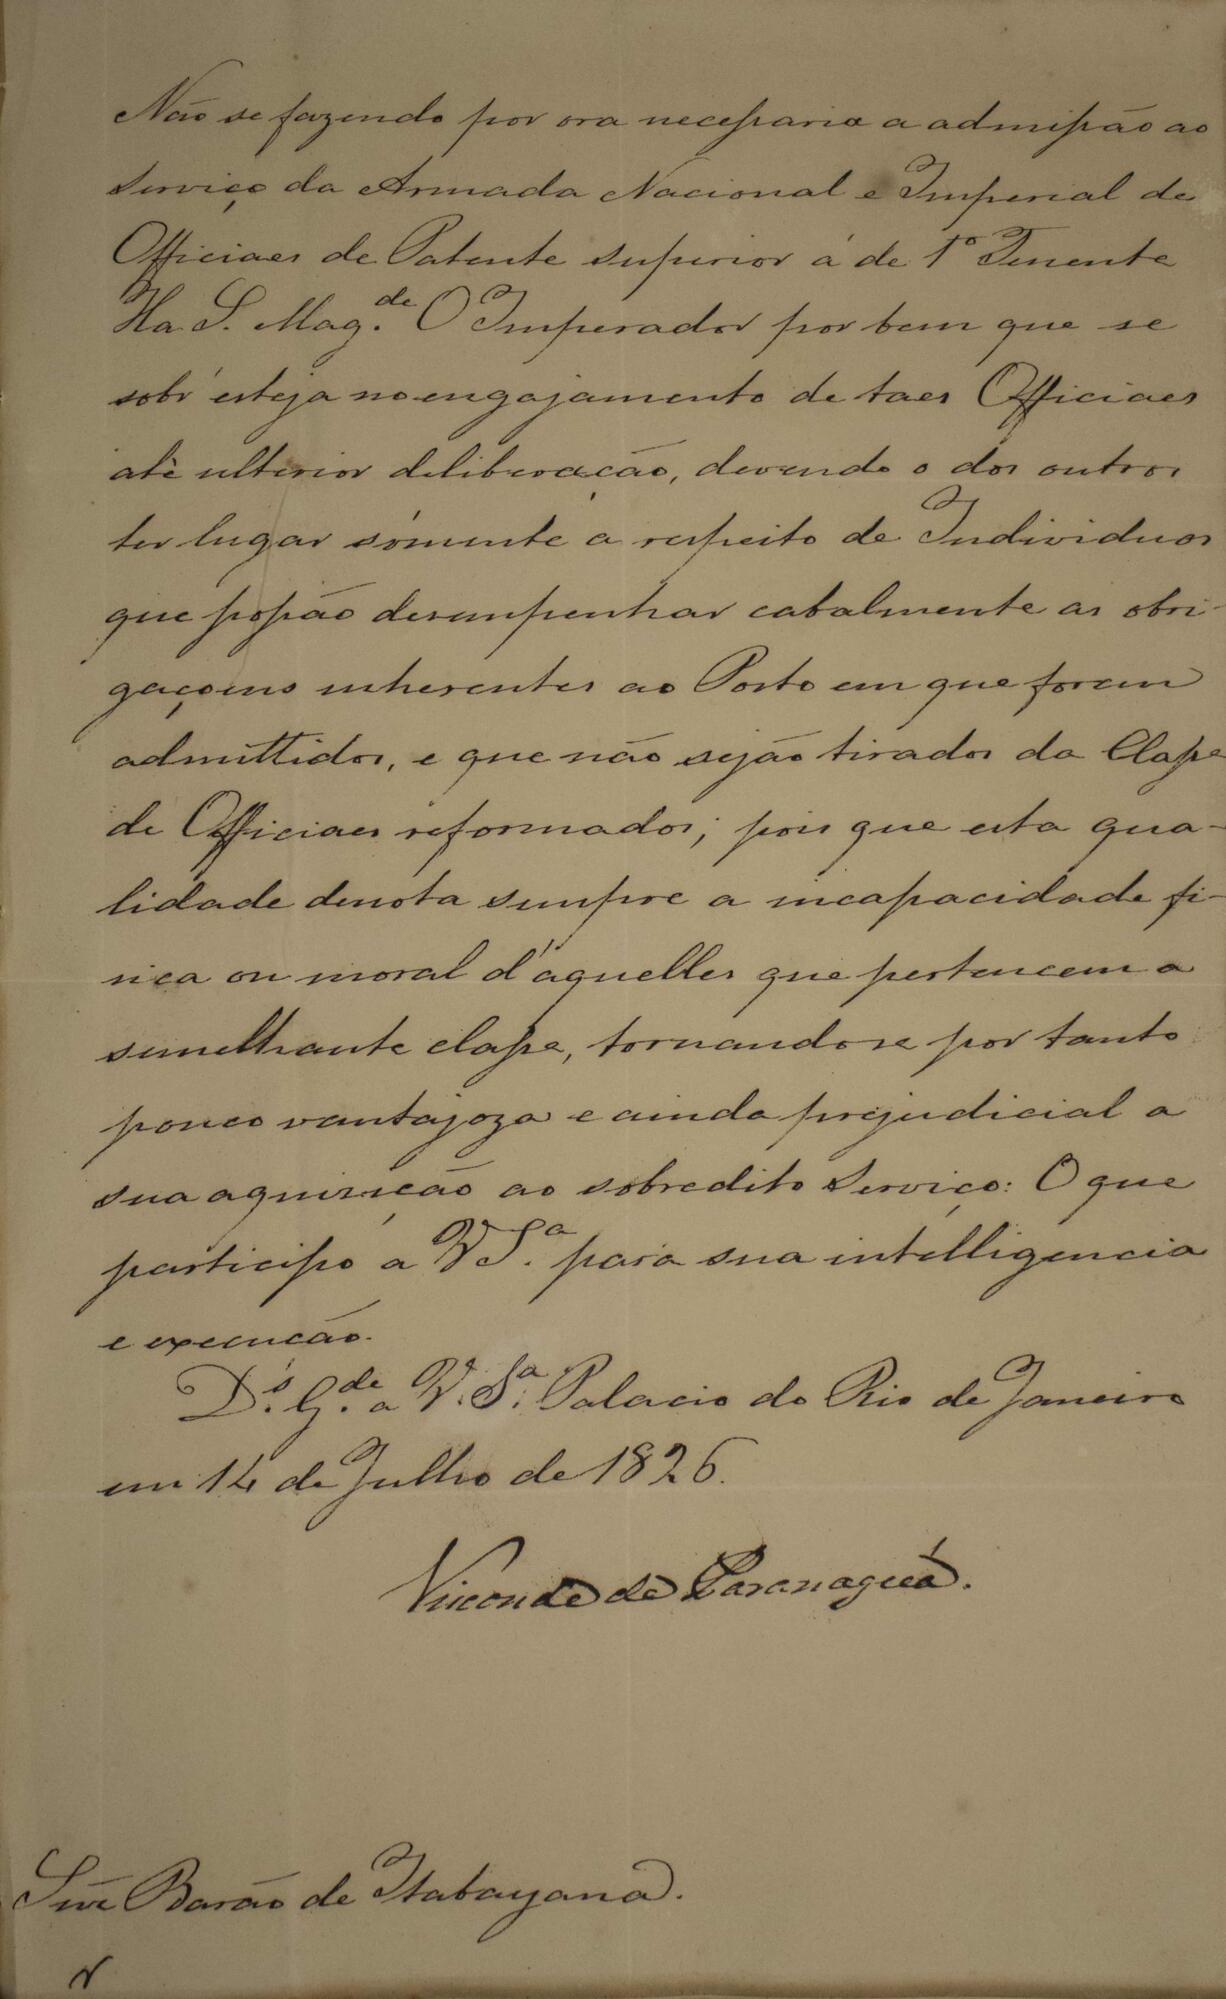 Não se fazendo por ora necessaria a admissão ao
serviço da Armada Nacional e Imperial de
Officiaes de Patente superior á de 1º Tenente
Ha S. Mag.de O Imperador por bem que se
sobr'esteja no engajamento de taes Officiaes
atè ulterior deliberação, devendo o dos outros
ter lugar sómente a respeito de Individuos
que possão desempenhar cabalmente as obri-
gaçoens inherentes ao Posto em que forem
admittidos, e que não sejão tirados da Classe
de Officiaes reformados; pois que esta qua-
lidade denota sempre a incapacidade fi-
sica ou moral d'aquelles que pertencem a
semelhante classe, tornandose por tanto
pouco vantajoza e ainda prejudicial a
sua aquisição ao sobredito Serviço: O que
participo a V Sª. para sua intelligencia
e execucão.
D.s G.de a V. Sª. Palacio do Rio de Janeiro
em 14 de Julho de 1826.
Visconde de Paranaguá.
Snr Barão de Itabayana.